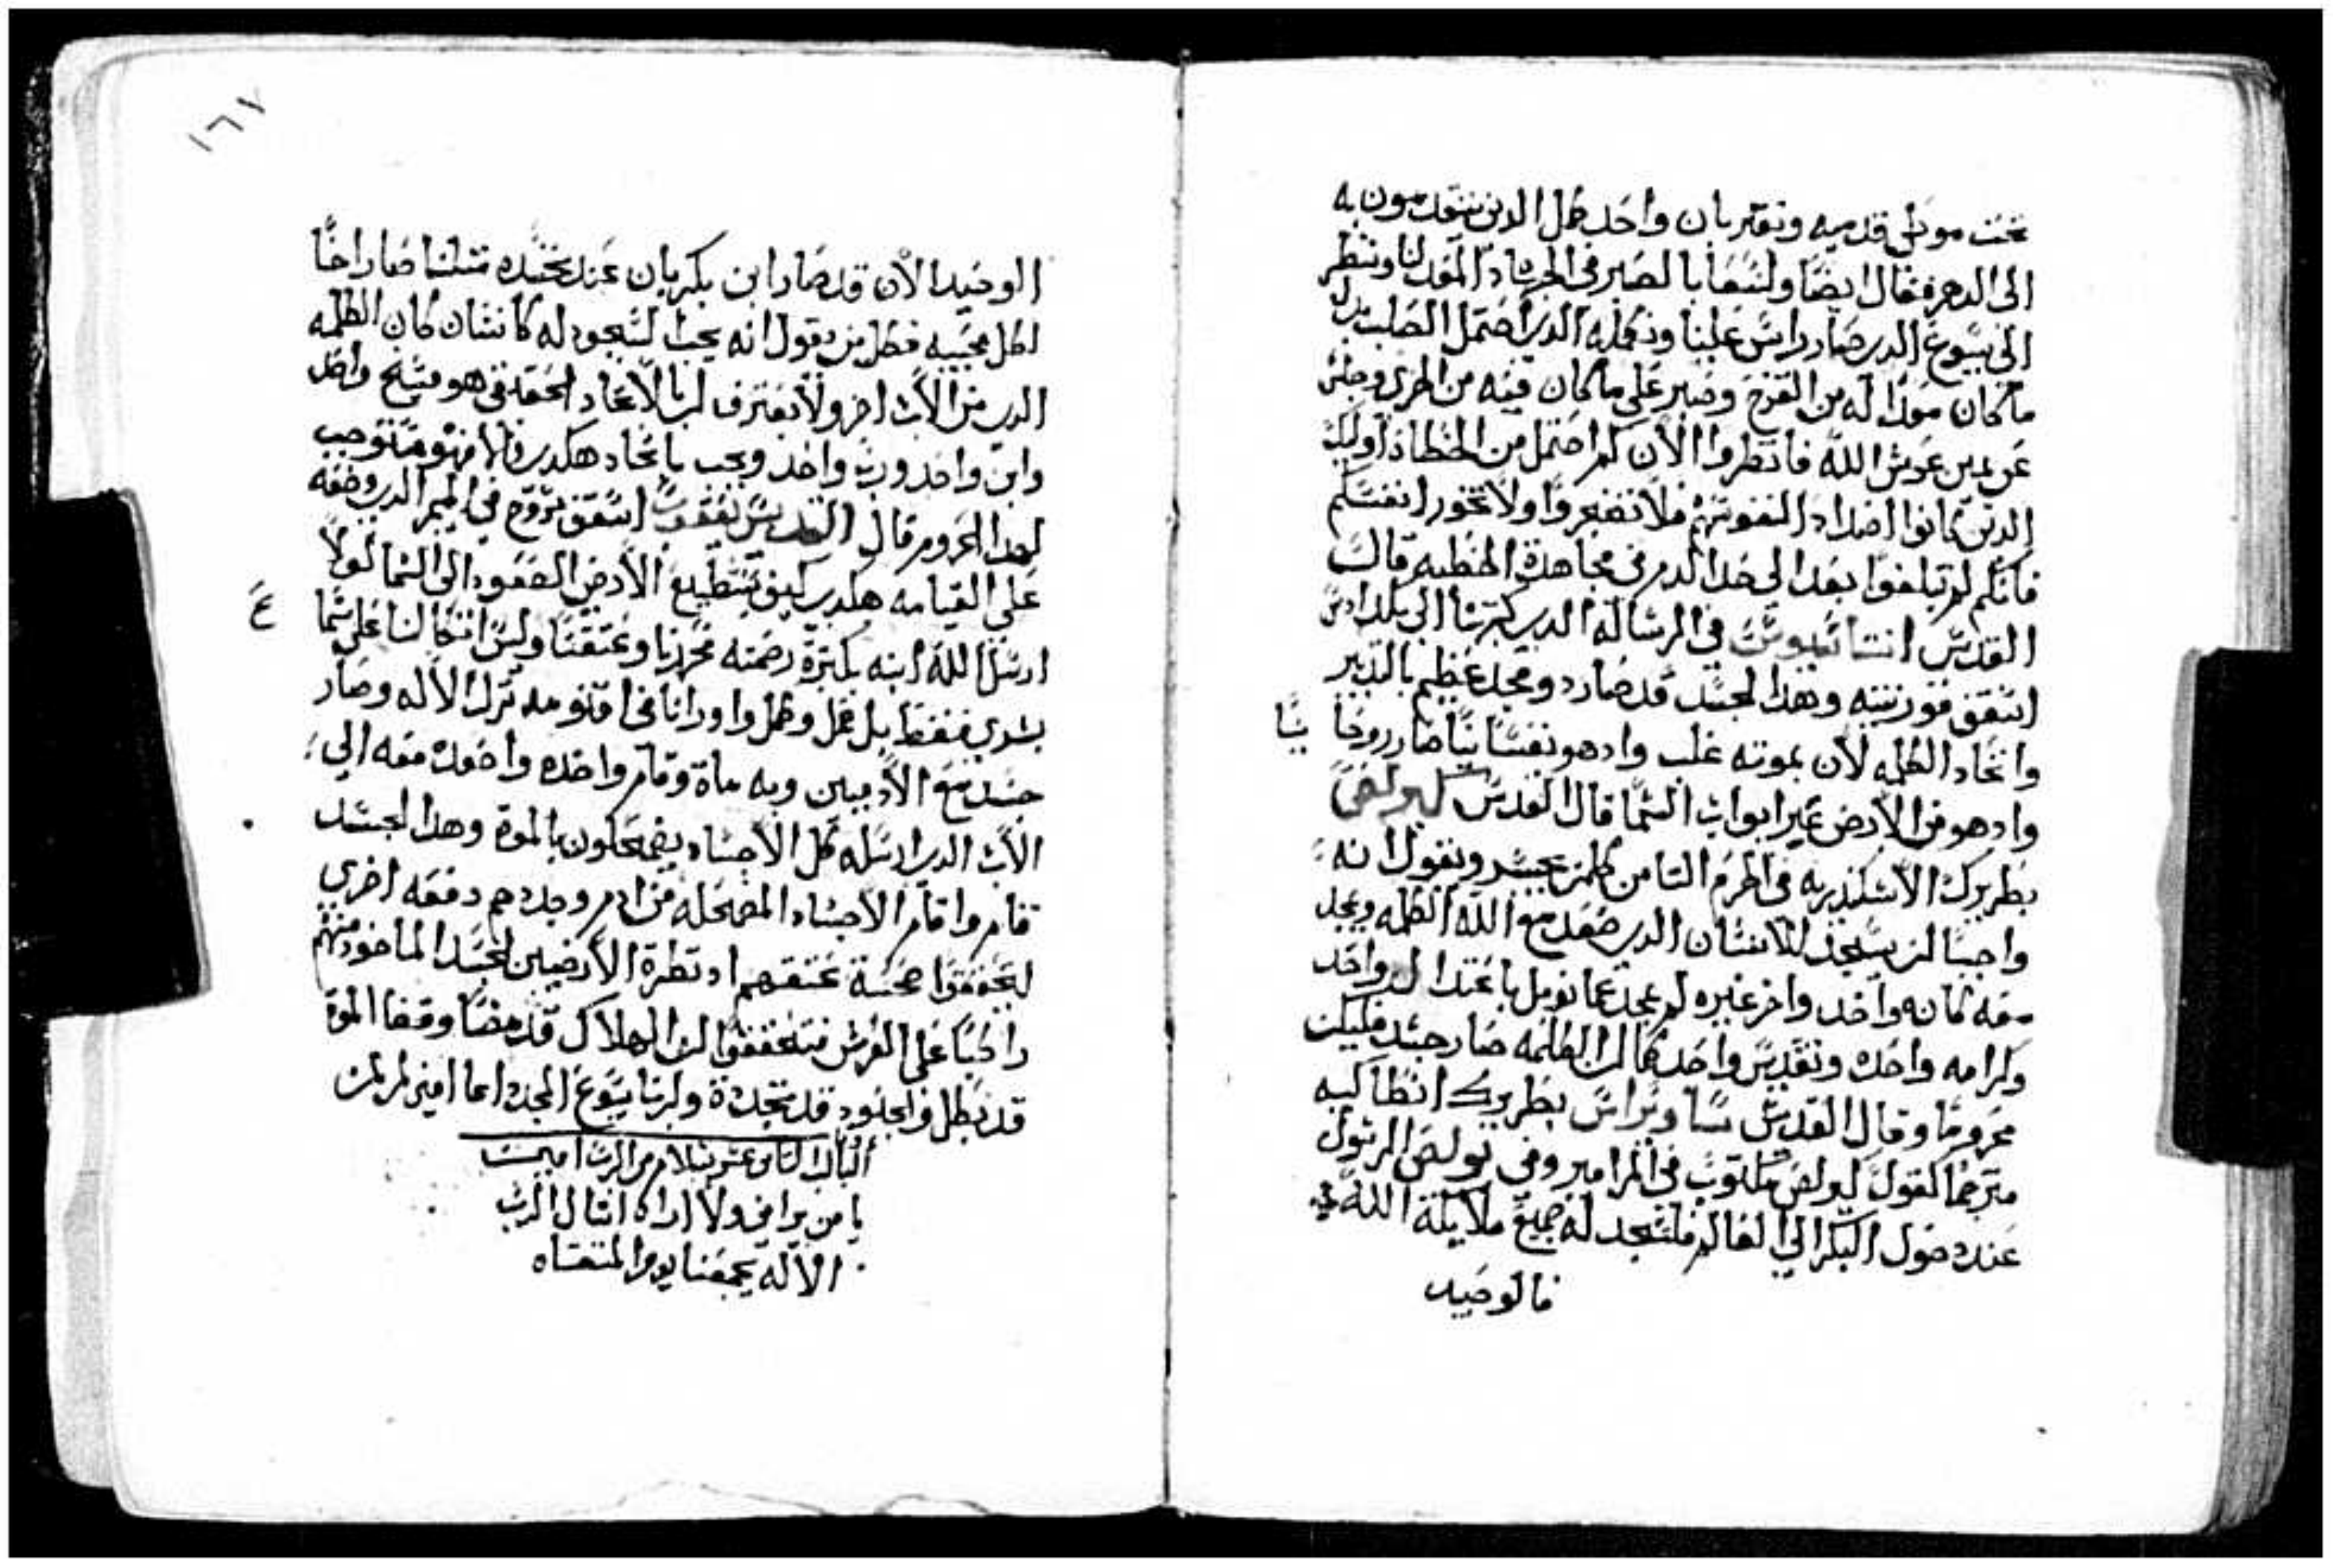 تحت موطى قدميه وبقربان واحد كمل الدين يتقدسون به
الى الدهر فقال ايضا ولنسعا بالصبر في الجهاد المعد لنا وننظر
الى يسوع الدي صار راس علينا ومكمله الدي احتمل الصلب بدل
ما كان معدا له من الفرح وصبر على ما كان فيه من الخزي وجلس
عن يمين عرش الله فانظروا الان كم احتمل من الخطاه اوليك
الدين كانوا اضدادا لنفوسهم فلا تضجروا ولا تخور انفسكم
فانكم لم تبلغوا بعد الى حد الدم في مجاهدة الخطيه قال
القديس اتناسيوس في الرسالة الدي كتبها الى بلد ادس
اسقف قورنتيه وهدا الجسد قد صار دو مجد عظيم بالتدبير
واتحاد الكلمه لان بموته غلب واد هو نفسانيا صار روحانيا
واد هو من الارض عبر ابواب السما قال القديس كيرلص
بطريرك الاسكندريه في الحرم التامن كلمن يجسر ويقول انه
واجبا ان يسجد للانسان الدي صعد مع الله الكلمه ويمجد
معه كانه واحد واخر غيره لم يمجد عمانويل باعتدال واحد
وكرامه واحده وتقديس واحد كما ان الكلمه صار جسد فليكن
محروما وقال القديس ساويراس بطريرك انطاكيه
مترجما لقول بولص مكتوب في المزامير وفي بولص الرسول
عند دخول البكر الى العالم فلتسجد له جميع ملايكة الله
فالوحيد
١٦٧
الوحيد الان قد صار ابن بكر بان عند تجسده متلنا صار اخا
لكل محبيه فكلمن يقول انه يجب السجود له كانسان كان الكلمه
الدي من الاب اخر ولا يعترف ان بالاتحاد الحقيقي هو مسيح واحد
وابن واحد ورب واحد ويجب باتحاد هكدي فالامهو مستوجب
لهدا الحروم قال القديس يعقوب اسقف سروج في الميمر الدي وضعه
على القيامه هكدي كيف تستطيع الارض الصعود الى السما لولا
ارسل الله ابنه بكترة رحمته فحررنا وعتقنا وليس اتكالنا على شما
بشري فقط بل فعل وكمل واورانا في اقنومه نزل الاله وصار
جسد مع الادميين وبه ماة وقام واخده واصعده معه الى
الاب الدي ارسله كل الاجساد يضمحلون بالموة وهدا الجسد
قام واقام الاجساد المضمحله من ادم وجددهم دفعه اخري
ليحققوا محبة عتقهم اد نظرة الارضيين لجسد الماخود منهم
راكبا على العرش فتحققوا ان الهلاك قد مضا وقفا الموة
قد بطل والجنود قد تجددة ولربنا يسوع المجد دايما امين
الباب التامن عشر بسلام من الرب امين
يا من يراني ولا اراه اسال الرب
الاله يجمعنا يوم المنتهاه